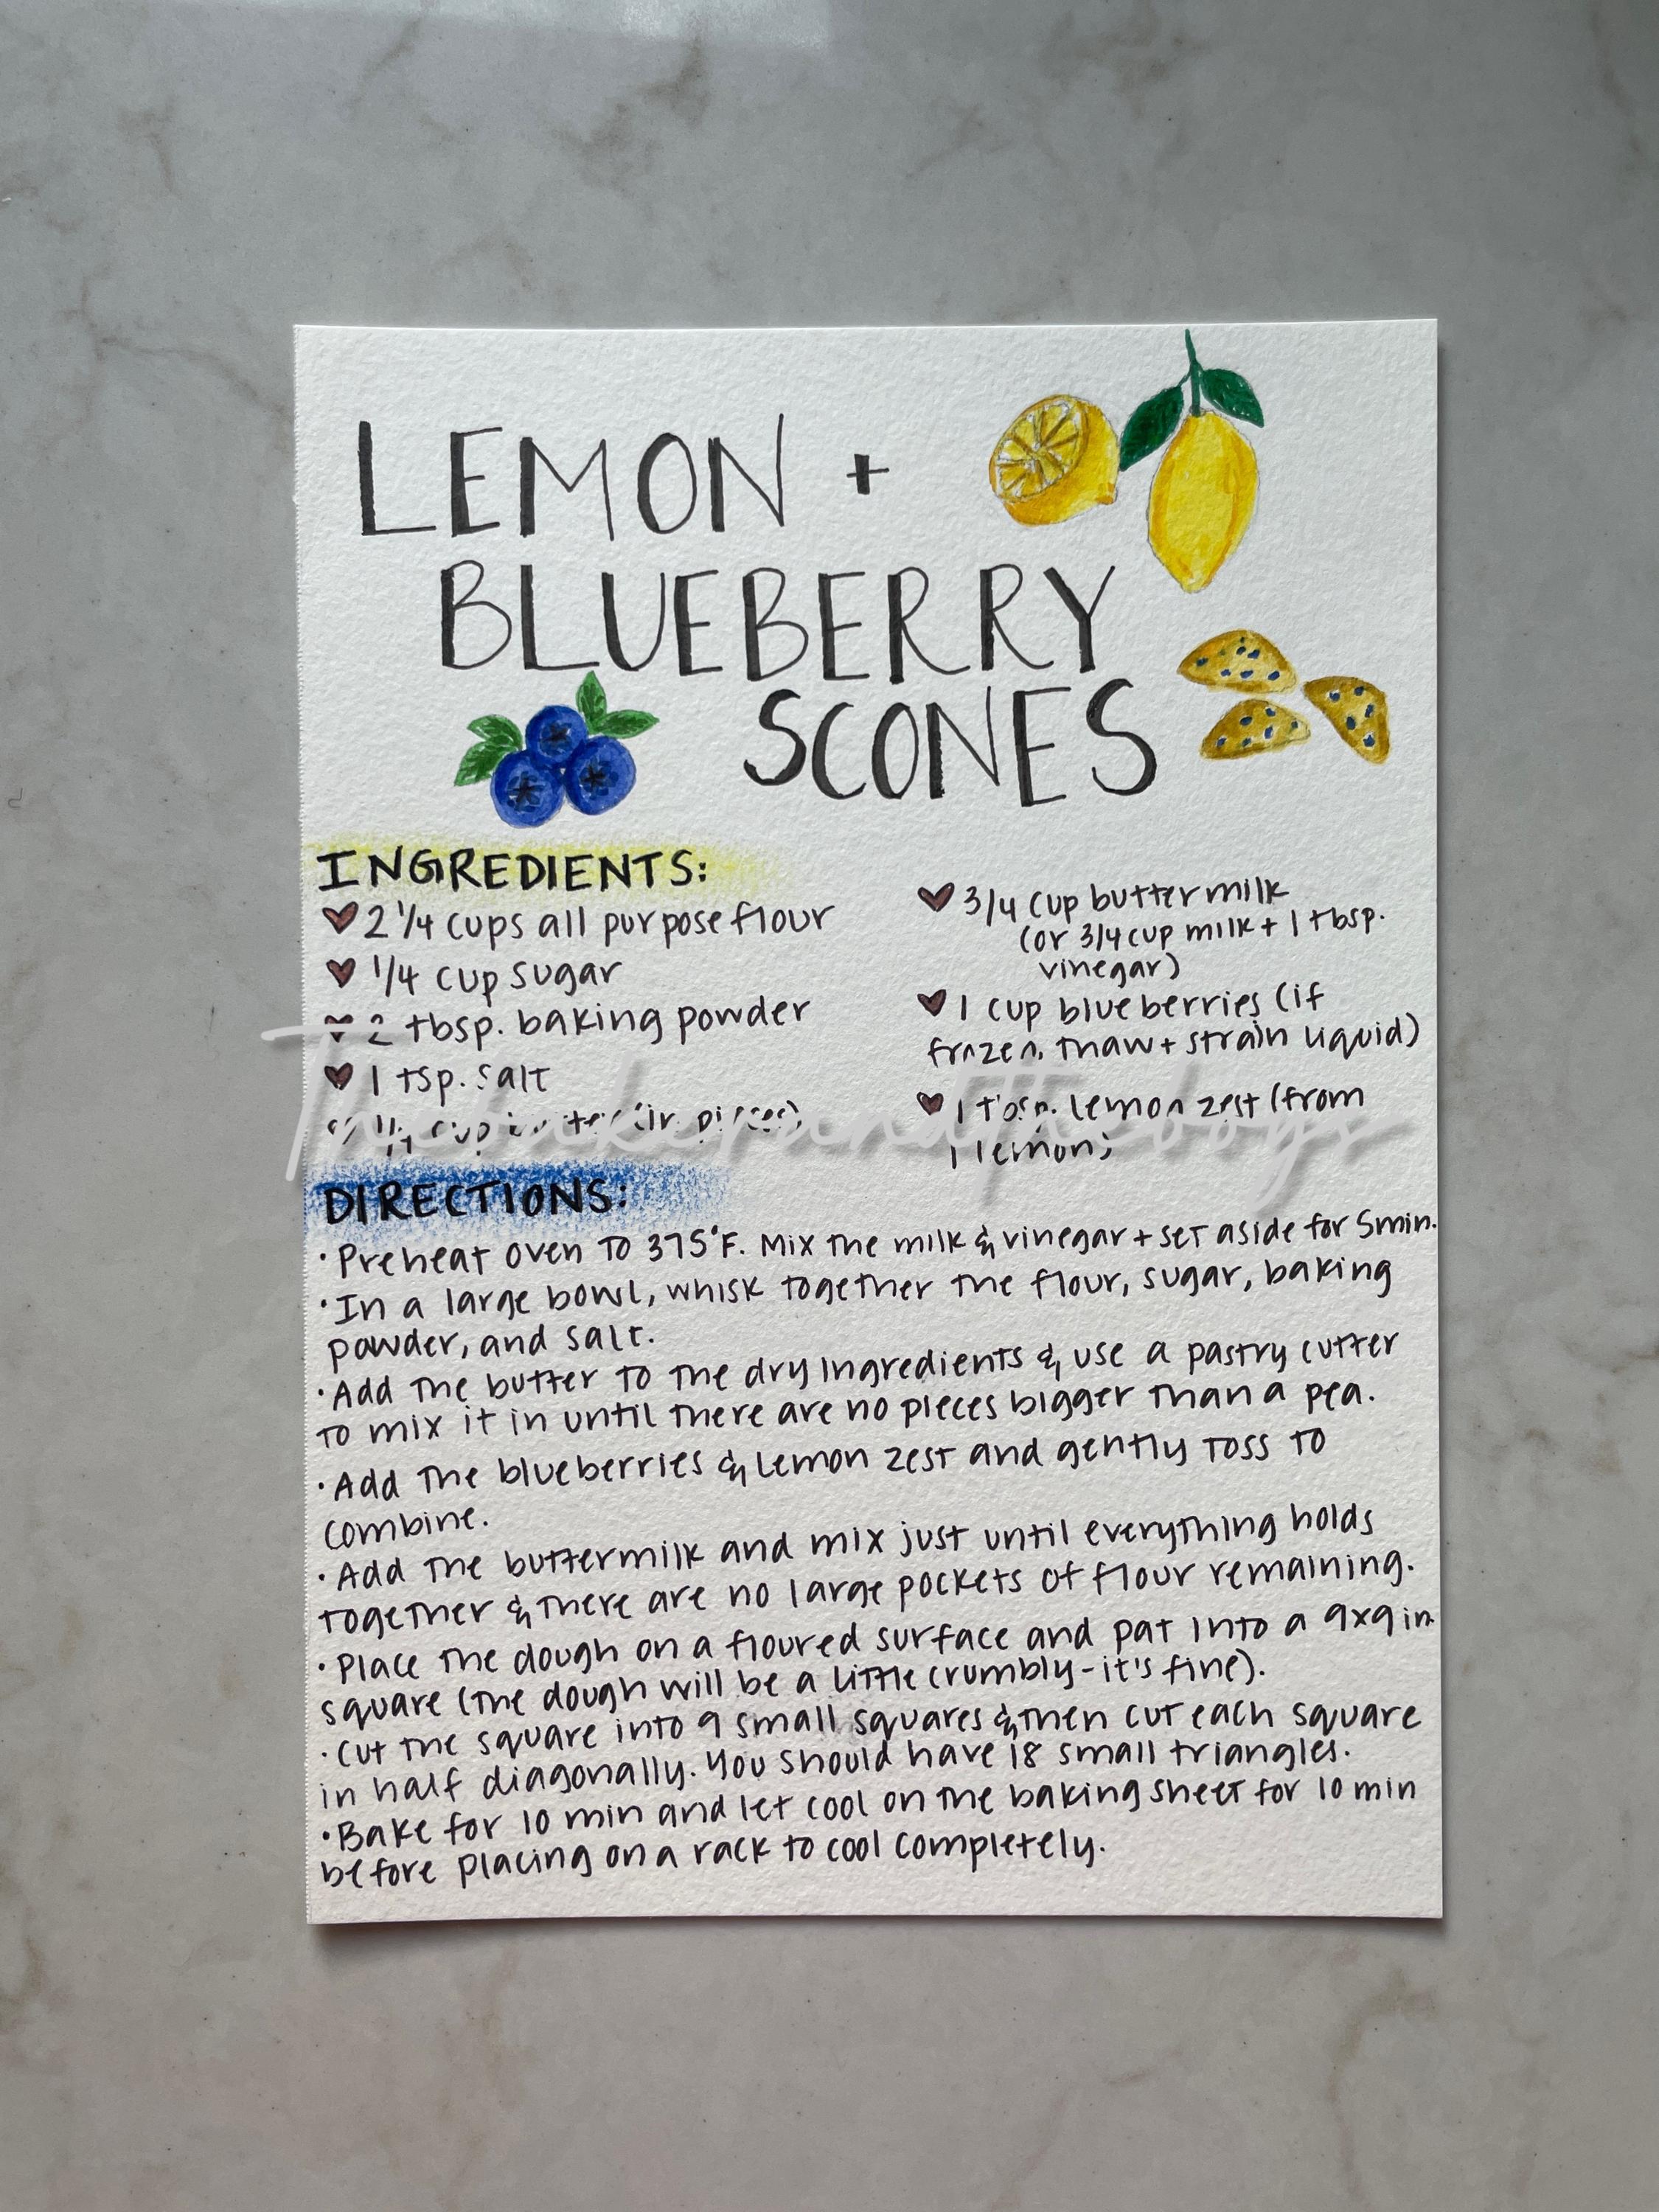 LEMON +
BLUEBERRY
SCONES
INGREDIENTS:
♥ 2 1/4 cups all purpose flour
♥ 1/4 cup sugar
♥ 2 tbsp. baking powder
♥ 1 tsp. salt
cup butter (in pieces)
♥ 3/4 cup buttermilk
(or 3/4 cup milk + 1 tbsp.
vinegar)
♥ 1 cup blueberries (if
frozen, thaw + strain liquid)
♥ 1 tbsp. lemon zest (from
1 lemon)
DIRECTIONS:
• Preheat oven to 375°F. Mix the milk & vinegar + set aside for 5min.
• In a large bowl, whisk together the flour, sugar, baking
powder, and salt.
• Add the butter to the dry ingredients & use a pastry cutter
to mix it in until there are no pieces bigger than a pea.
• Add the blueberries & lemon zest and gently toss to
combine.
• Add the buttermilk and mix just until everything holds
together & there are no large pockets of flour remaining.
• Place the dough on a floured surface and pat into a 9x9 in.
square (the dough will be a little crumbly - it's fine).
• Cut the square into 9 small squares & then cut each square
in half diagonally. You should have 18 small triangles.
• Bake for 10 min and let cool on the baking sheet for 10 min
before placing on a rack to cool completely.